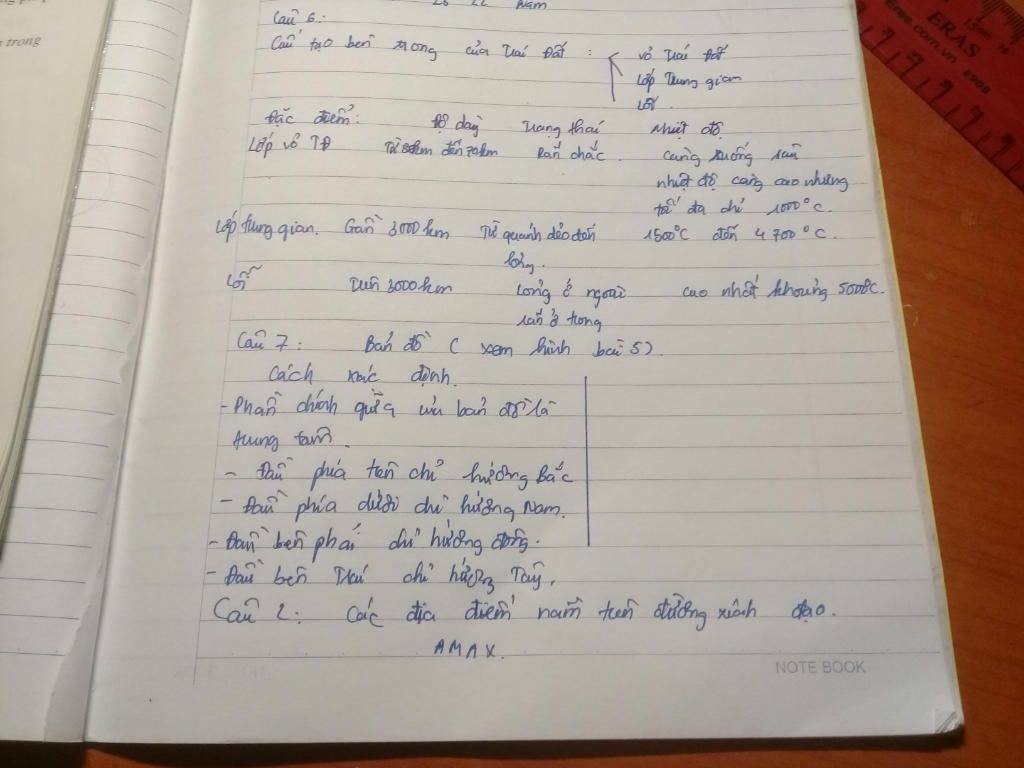 Nam
Câu 6:
Cấu tạo bên trong của Trái Đất : vỏ trái đất
Lớp trung gian
Lõi.
Đặc điểm: Độ dày Trạng thái Nhiệt độ
Lớp vỏ TĐ Từ 5km đến 70km Rắn chắc. càng xuống sâu
nhiệt độ càng cao nhưng
tối đa chỉ 1000°C.
Lớp trung gian. Gần 3000km Từ quánh dẻo đến 1500°C đến 4700°C.
lỏng.
Lõi Trên 3000km Lỏng ở ngoài cao nhất khoảng 5000°C.
rắn ở trong
Câu 7: Bản đồ ( xem hình bài 5)
Cách xác định.
- Phần chính giữa của bản đồ là
trung tâm.
- Đầu phía trên chỉ hướng Bắc
- Đầu phía dưới chỉ hướng Nam.
- Đầu bên phải chỉ hướng đông.
- Đầu bên Trái chỉ hướng Tây.
Câu 2: Các địa điểm nằm trên đường xích đạo.
AMAX.
NOTE BOOK
trong
ERAS
Eras.com.vn E908